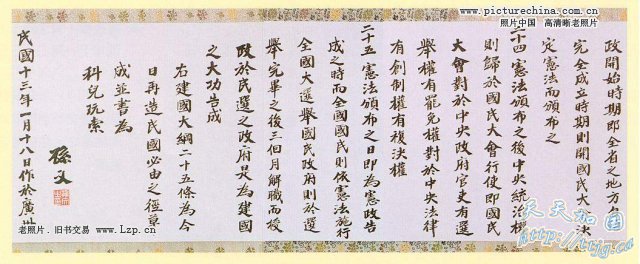 www.picturechina.com.cn
照片中国 高清晰老照片
政開始時期即全省之地方自
完全成立時期則開國民大會決
定憲法而頒布之
二十四憲法頒布之後中央統治權
則歸於國民大會行使即國民
大會對於中央政府官吏有選
舉權有罷免權對於中央法律
有創制權有複決權
二十五憲法頒布之日即為憲政告
成之時而全國國民則依憲法施行
全國大選舉國民政府則於選
舉完畢之後三個月解職而授
政於民選之政府是為建國
之大功告成
右建國大綱二十五條為今
日再造民國必由之徑草
成並書為
科兒玩索
孫文
民國十三年一月十八日作於廣州
老照片.旧书交易 www.Lzp.cn
天天加国
http://ttjg.ca